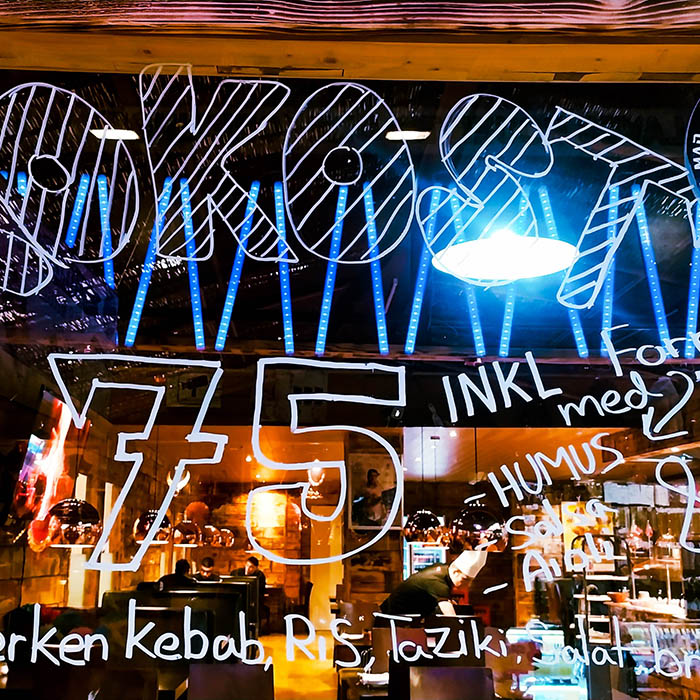 OKOST
75 INKL
med
- HUMUS
Salsa
- Aioli
kebab, Ris, Taziki, salat